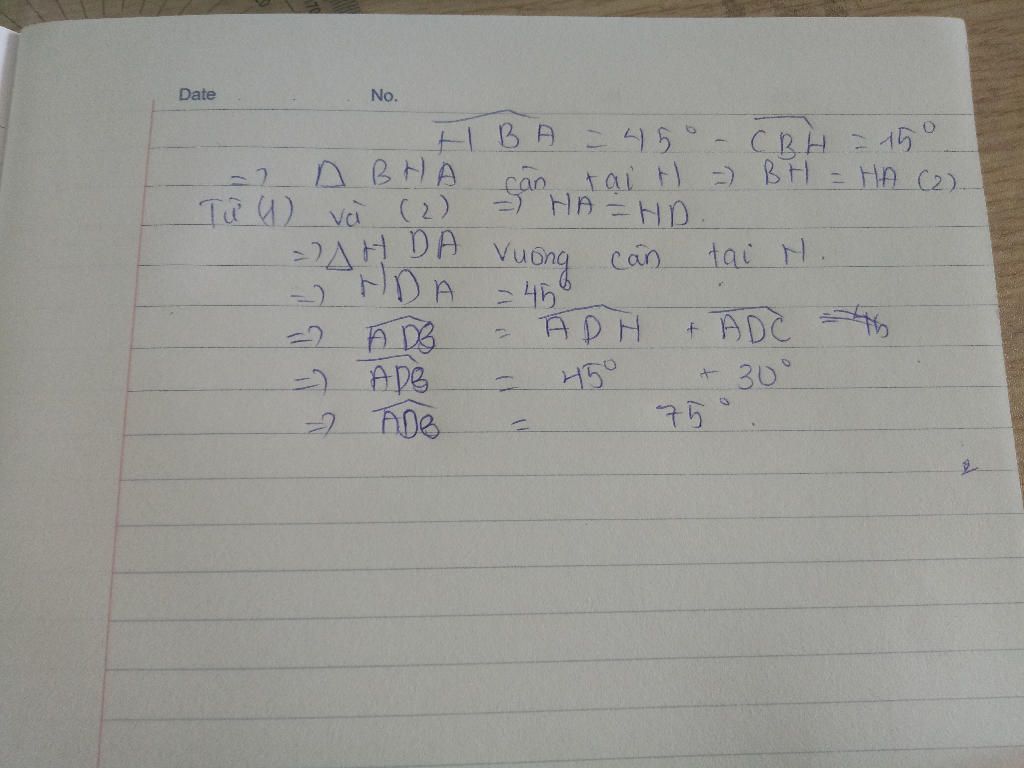 Date No.
HBA = 45° - CBH = 15°
=> Δ BHA cân tại H => BH = HA (2)
Từ (1) và (2) => HA = HD.
=> Δ HDA vuông cân tại H.
=> HDA = 45°
=> ADB = ADH + ADC
=> ADB = 45° + 30°
=> ADB = 75°.